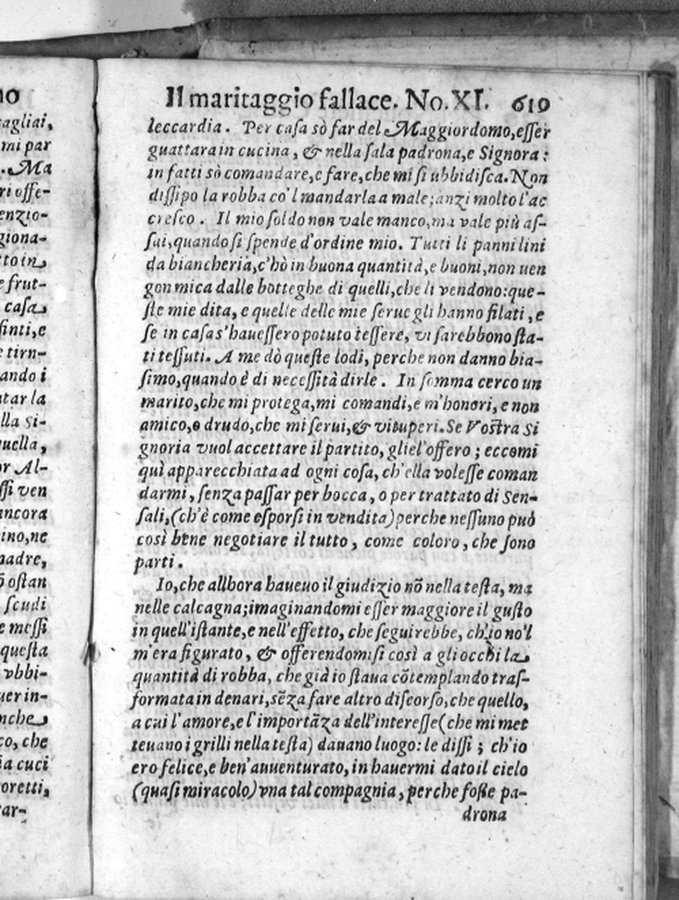 no
tagliai,
mi par
. Ma
ri offe-
enzio-
giona-
tto in
e frut-
casa
finti, e
e tirn-
ando i
ntar la
lla Si-
quella,
or Al-
ssi ven
ancora
ino, ne
madre,
õ ostan
scudi
e messi
questa
vbbi-
uer in-
nche
co, che
ia cuci
oretti,
rar-
Il maritaggio fallace. No. XI. 610
leccardia. Per casa sò far del Maggiordomo, esser
guattara in cucina, & nella sala padrona, e Signora:
in fatti sò comandare, e fare, che mi si ubbidisca. Non
dissipo la robba co'l mandarla a male; anzi molto l'ac
cresco. Il mio soldo non vale manco, ma vale più as-
sai, quando si spende d'ordine mio. Tutti li panni lini
da biancheria, c'hò in buona quantità, e buoni, non uen
gon mica dalle botteghe di quelli, che li vendono: que-
ste mie dita, e quelle delle mie serue gli hanno filati, e
se in casa s'hauessero potuto tessere, vi sarebbono sta-
ti tessuti. A me dò queste lodi, perche non danno bia-
simo, quando è di necessità dirle. In somma cerco un
marito, che mi protega, mi comandi, e m'honori, e non
amico, o drudo, che mi serui, & vituperi. Se Vostra Si
gnoria vuol accettare il partito, gliel'offero; eccomi
quì apparecchiata ad ogni cosa, ch'ella volesse coman
darmi, senza passar per bocca, o per trattato di Sen-
sali, (ch'è come esporsi in vendita) perche nessuno può
così bene negotiare il tutto, come coloro, che sono
parti.
Io, che allhora haueuo il giudizio nõ nella testa, ma
nelle calcagna; imaginandomi esser maggiore il gusto
in quell'istante, e nell'effetto, che seguirebbe, ch'io no'l
m'era figurato, & offerendomisi così a gli occhi la
quantità di robba, che già io staua cõtemplando tras-
formata in denari, sẽza fare altro discorso, che quello,
a cui l'amore, e l'importãza dell'interesse (che mi met
teuano i grilli nella testa) dauano luogo: le dissi; ch'io
ero felice, e ben'auuenturato, in hauermi dato il cielo
(quasi miracolo) vna tal compagnia, perche foste pa-
drona